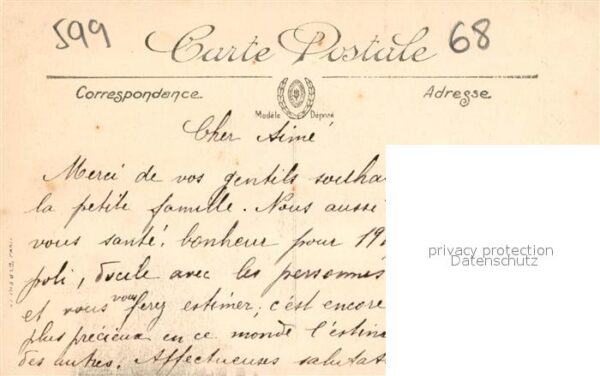 599
68
Carte Postale
Correspondance
Adresse
Modèle Déposé
Cher Aimé
Merci de vos gentils souhai
la petite famille. Nous aussi
vous santé, bonheur pour 19
poli, docile avec les personnes
et vous vous ferez estimer, c'est encore
plus précieux en ce monde l'estim
des autres. Affectueuses salutat
privacy protection
Datenschutz